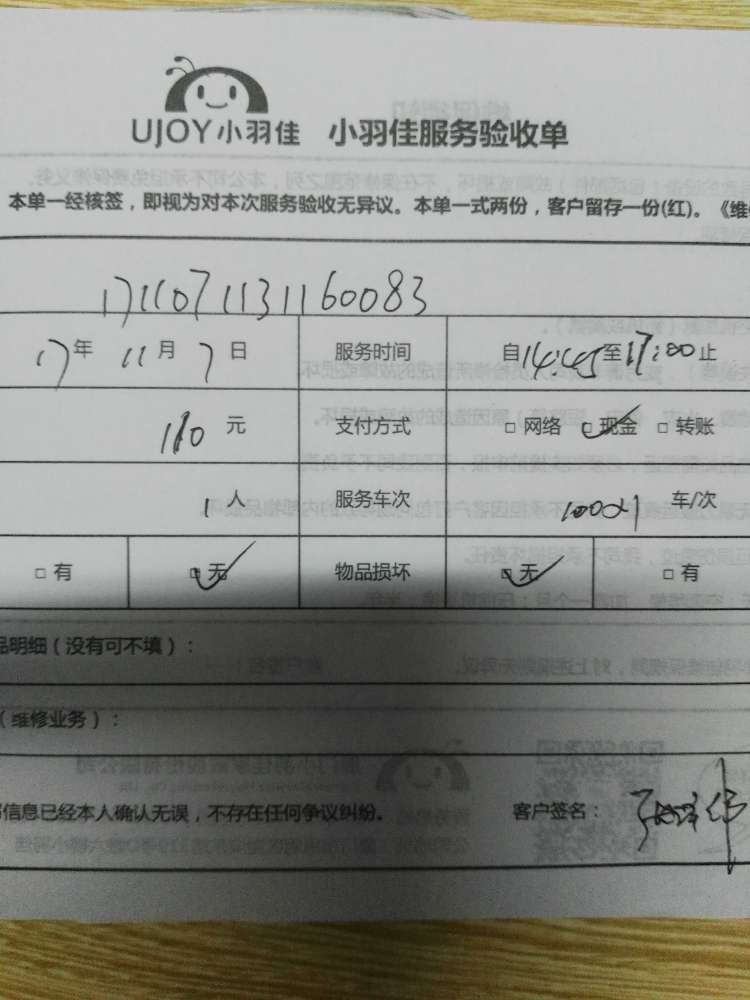 UJOY小羽佳 小羽佳服务验收单
本单一经核签，即视为对本次服务验收无异议。本单一式两份，客户留存一份(红)。《维
1711071131160083
17年 11月 7日 服务时间 自14:45至17:00止
110元 支付方式 □ 网络 □ 现金 □ 转账
1人 服务车次 车/次
□ 有 □ 无 物品损坏 □ 无 □ 有
品明细（没有可不填）：
（维修业务）：
信息已经本人确认无误，不存在任何争议纠纷。 客户签名：